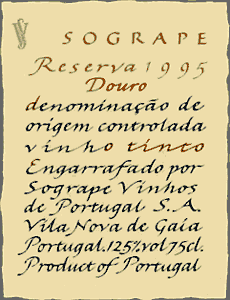 SOGRAPE
Reserva 1995
Douro
denominação de
origem controlada
vinho tinto
Engarrafado por
Sogrape Vinhos
de Portugal S.A.
Vila Nova de Gaia
Portugal.12.5%vol 75cl.
Product of Portugal